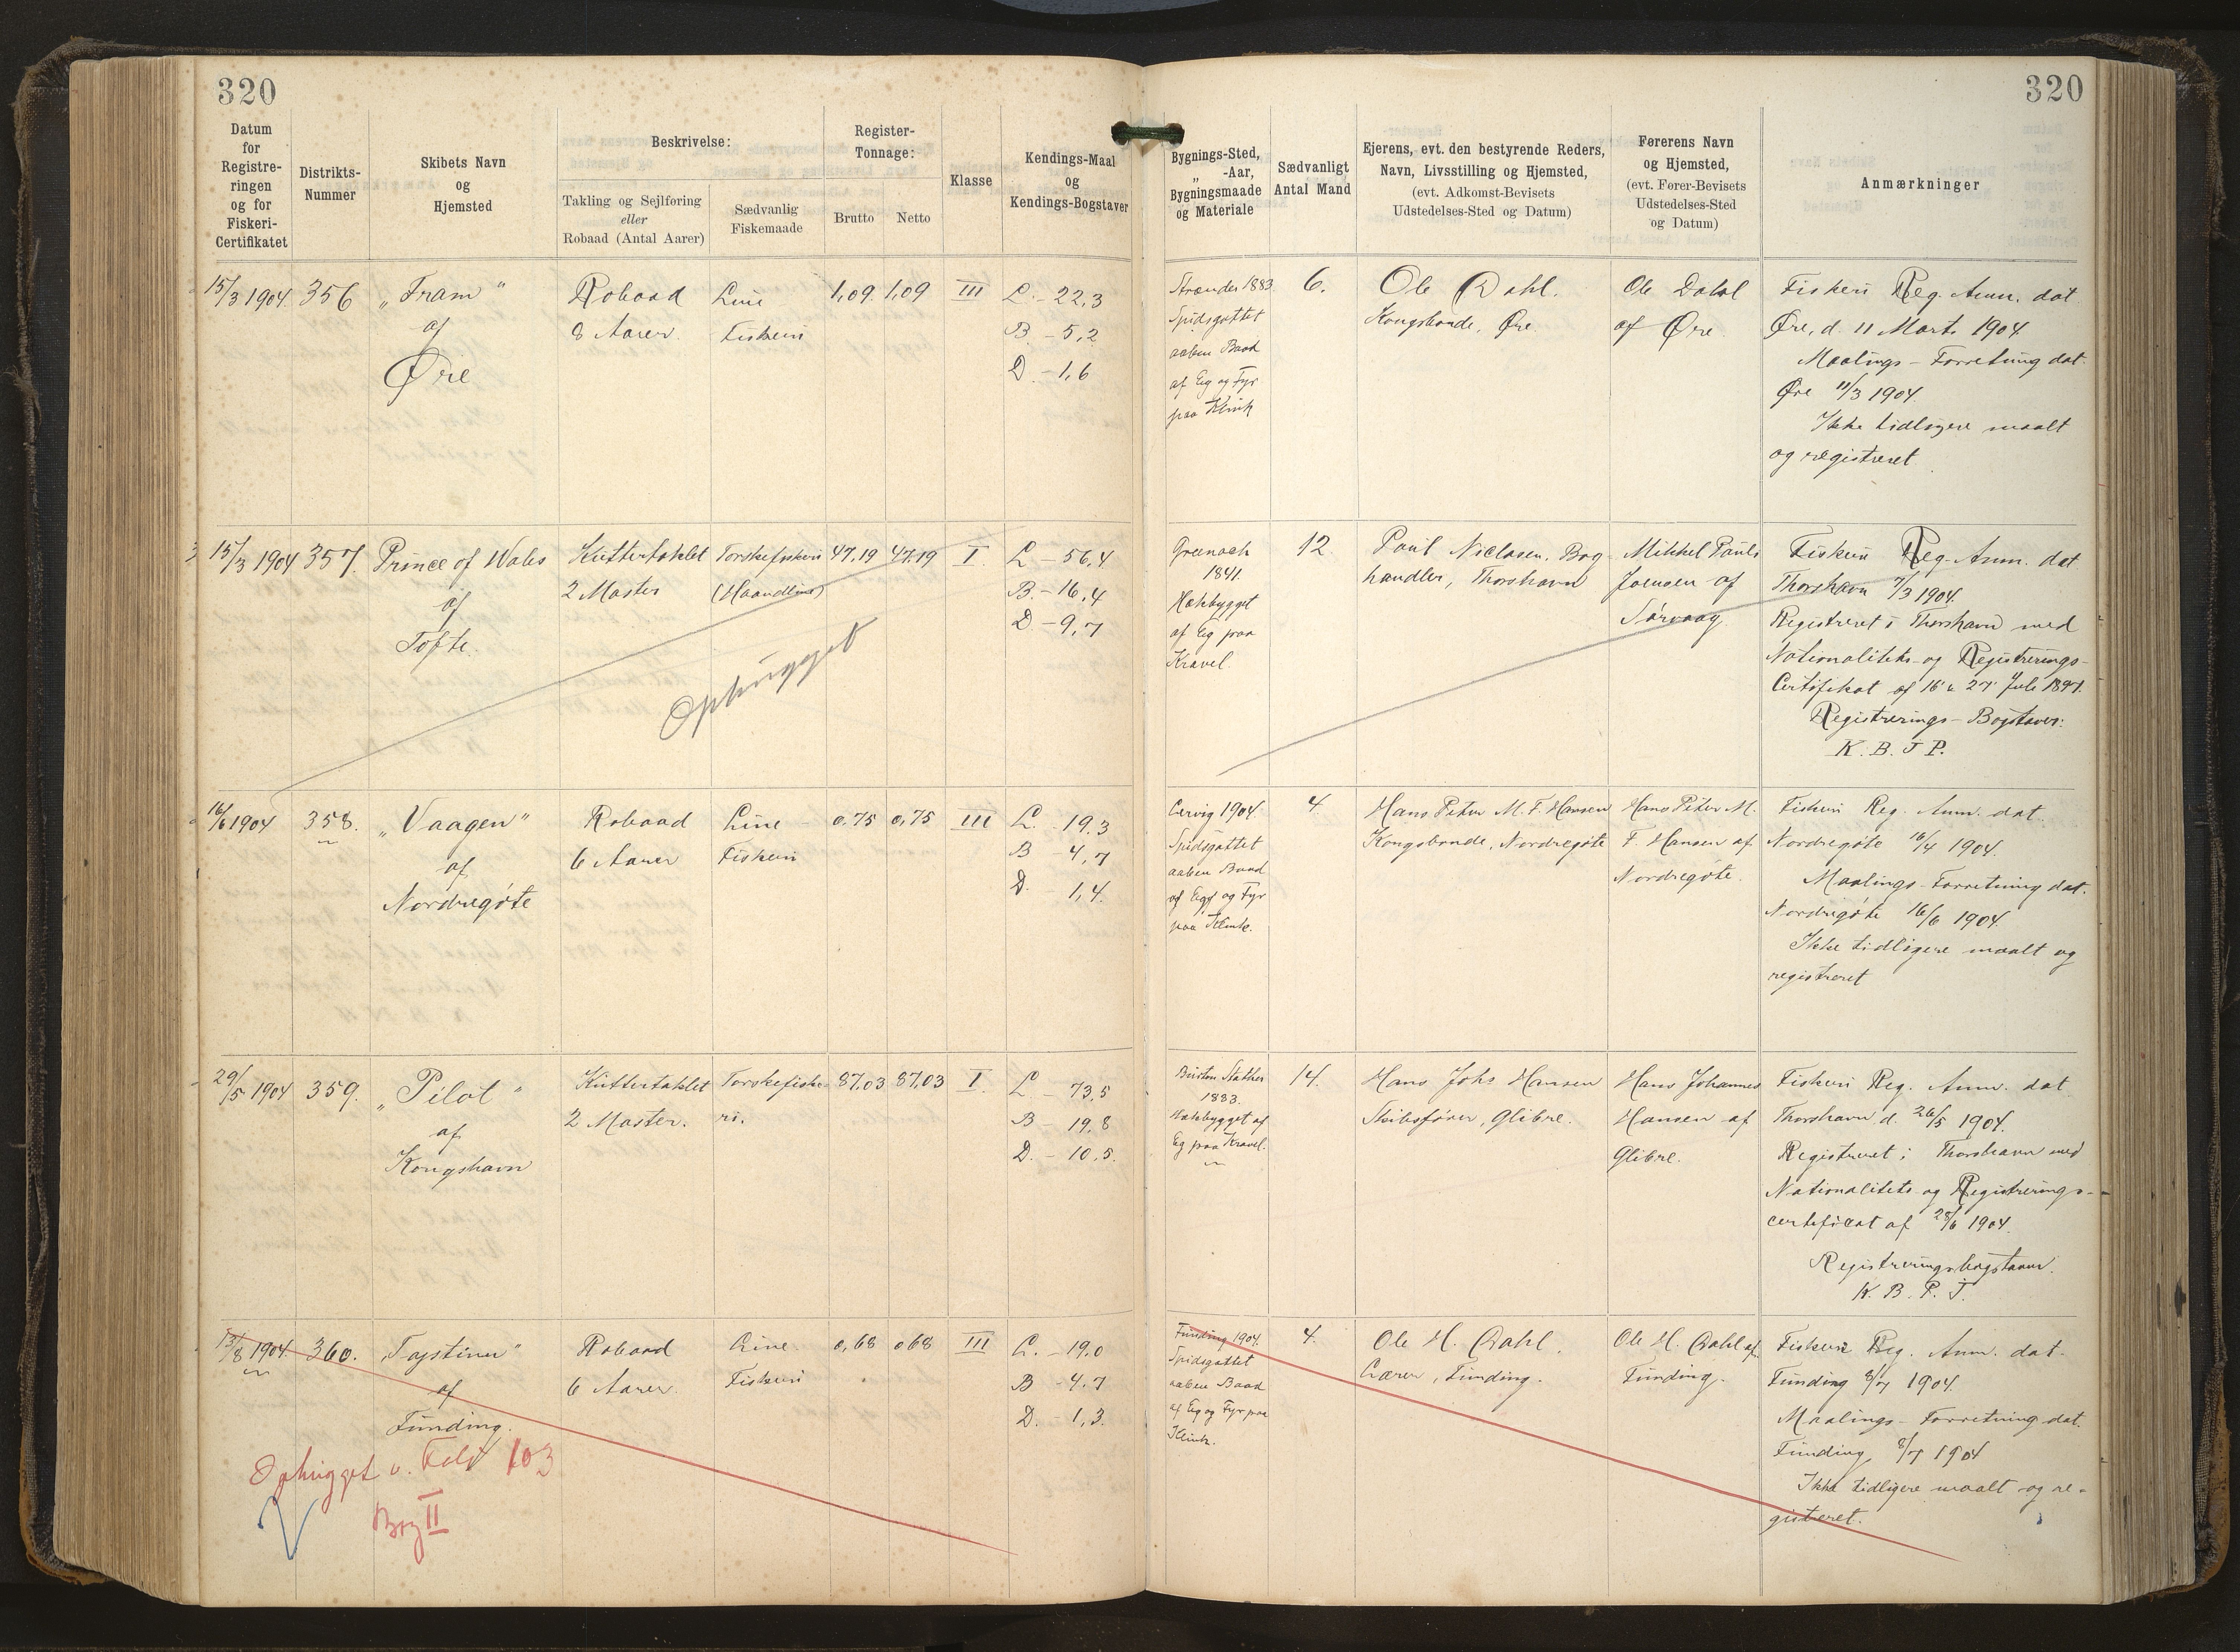 320
320
Datum
for
Registre-
ringen
og for
Fiskeri-
Certifikatet
Distrikts-
Nummer
Skibets Navn
og
Hjemsted
Beskrivelse:
Takling og Sejlføring
eller
Robaad (Antal Aarer)
Sædvanlig
Fiskemaade
Register-
Tonnage:
Brutto
Netto
Klasse
Kendings-Maal
og
Kendings-Bogstaver
Bygnings-Sted,
„ -Aar,
Bygningsmaade
og Materiale
Sædvanligt
Antal Mand
Ejerens, evt. den bestyrende Reders,
Navn, Livsstilling og Hjemsted,
(evt. Adkomst-Bevisets
Udstedelses-Sted og Datum)
Førerens Navn
og Hjemsted,
(evt. Fører-Bevisets
Udstedelses-Sted
og Datum)
Anmærkninger
15/3 1904
356
„Fram"
af
Øre
Robaad
8 Aarer.
Line
Fiskeri
1,09
1,09
III
L. - 22,3
B. - 5,2
D. - 1,6
Strænder 1883
Spidsgattet
aaben Baad
af Eg og Fyr
paa Klink
6.
Ole Dahl.
Kongsbonde, Øre.
Ole Dahl
af Øre.
Fiskeri Reg. Anm. dat
Øre, d. 11 Marts 1904
Maalings-Forretning dat.
Øre 11/3 1904.
Ikke tidligere maalt
og registreret
15/3 1904
357.
Prince of Wales
af
Tofte.
Kuttertaklet
2 Master
Torskefiskeri
(Haandline)
47,19
47,19
I.
L - 56,4
B. - 16,4
D - 9,7
Ophugget
Greenock
1841.
Hækbygget
af Eg paa
Kravel.
12.
Poul Niclasen, Bog-
handler, Thorshavn
Mikkel Pauls
Joensen af
Sørvaag
Fiskeri Reg. Anm. dat.
Thorshavn 7/3 1904.
Registreret i Thorshavn med
Nationalitets- og Registrerings-
Certifikat af 16 & 27 Juli 1897.
Registrerings-Bogstaver:
K. B. J P.
16/6 1904
358.
„Vaagen"
af
Nordregöte
Robaad
6 Aarer
Line
Fiskeri
0,75
0,75
III
L. 19,3
B - 4,7
D. 1,4.
Lervig 1904.
Spidsgattet
aaben Baad
af Eg og Fyr
paa Klink.
4.
Hans Peter M. F. Hansen
Kongsbonde, Nordregöte
Hans Peter M.
F. Hansen af
Nordregöte.
Fiskeri Reg. Anm. dat.
Nordregöte 16/4 1904.
Maalings-Forretning dat.
Nordregöte 16/6 1904.
Ikke tidligere maalt og
registreret
29/5 1904
359.
„Pilot"
af
Kongshavn
Kuttertaklet
2 Master.
Torskefiske-
ri.
87,03
87,03
I.
L - 73,5
B - 19,8
D. - 10,5.
Burton Stather
1883.
Hækbygget af
Eg paa Kravel.
14.
Hans Johs Hansen
Skibsfører, Glibre.
Hans Johannes
Hansen af
Glibre.
Fiskeri Reg. Anm. dat
Thorshavn d. 26/5 1904.
Registreret i Thorshavn med
Nationalitets- og Registrerings-
certificat af 28/6 1904.
Registreringsbogstaver.
K. B. P. J.
13/8 1904.
360.
af
Funding.
Robaad
6 Aarer.
Line.
Fiskeri
0,68
0,68
III
L. - 19,0
B - 4,7
D. - 1,3.
Ophugget v. Fol 103
Bog II
Funding 1904.
Spidsgattet
aaben Baad
af Eg og Fyr paa
Klink.
4.
Ole H. Dahl.
Lærer, Funding.
Ole H. Dahl af
Funding.
Fiskeri Reg. Anm. dat.
Funding 8/7 1904.
Maalings-Forretning dat.
Funding, 8/7 1904
Ikke tidligere maalt og re-
gistreret.